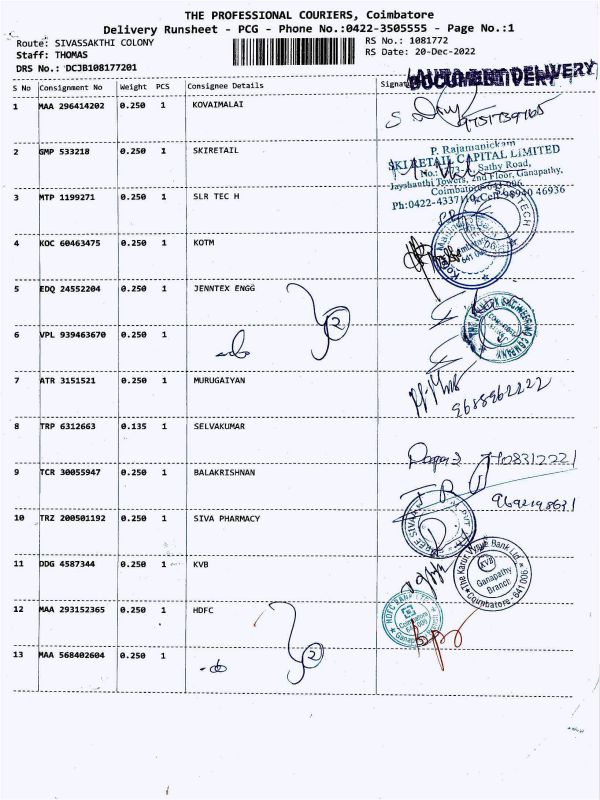 THE PROFESSIONAL COURIERS, Coimbatore
Delivery Runsheet - PCG - Phone No.:0422-3505555 - Page No.:1
Route: SIVASSAKTHI COLONY
RS No.: 1081772
Staff: THOMAS
RS Date: 20-Dec-2022
DRS No.: DCJB108177201
S No Consignment No Weight PCS Consignee Details
DELIVERY
1 MAA 296414202 0.250 1 KOVAIMALAI
2 GMP 533218 0.250 1 SKIRETAIL
P. Rajamanickam
SKI RETAIL CAPITAL LIMITED
Sathy Road,
Jayshanthi Towers, 2nd Floor, Ganapathy,
Coimbatore-641 006.
3 MTP 1199271 0.250 1 SLR TEC H
4 KOC 60463475 0.250 1 KOTM
641 00
5 EDQ 24552204 0.250 1 JENNTEX ENGG
2
6 VPL 939463670 0.250 1
7 ATR 3151521 0.250 1 MURUGAIYAN
9688962222
8 TRP 6312663 0.135 1 SELVAKUMAR
9 TCR 30055947 0.250 1 BALAKRISHNAN
10 TRZ 200501192 0.250 1 SIVA PHARMACY
11 DDG 4587344 0.250 1 KVB
The Karur Vysya Bank Ltd.
KVB
Ganapathy
Branch
Coimbatore - 641 006
12 MAA 293152365 0.250 1 HDFC
HDFC BANK
13 MAA 568402604 0.250 1
2